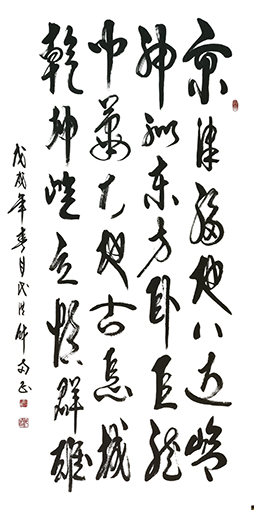 京津福地八达岭
神州东方卧巨龙
中華大地古長城
乾坤屹立群雄
戊戌年春月